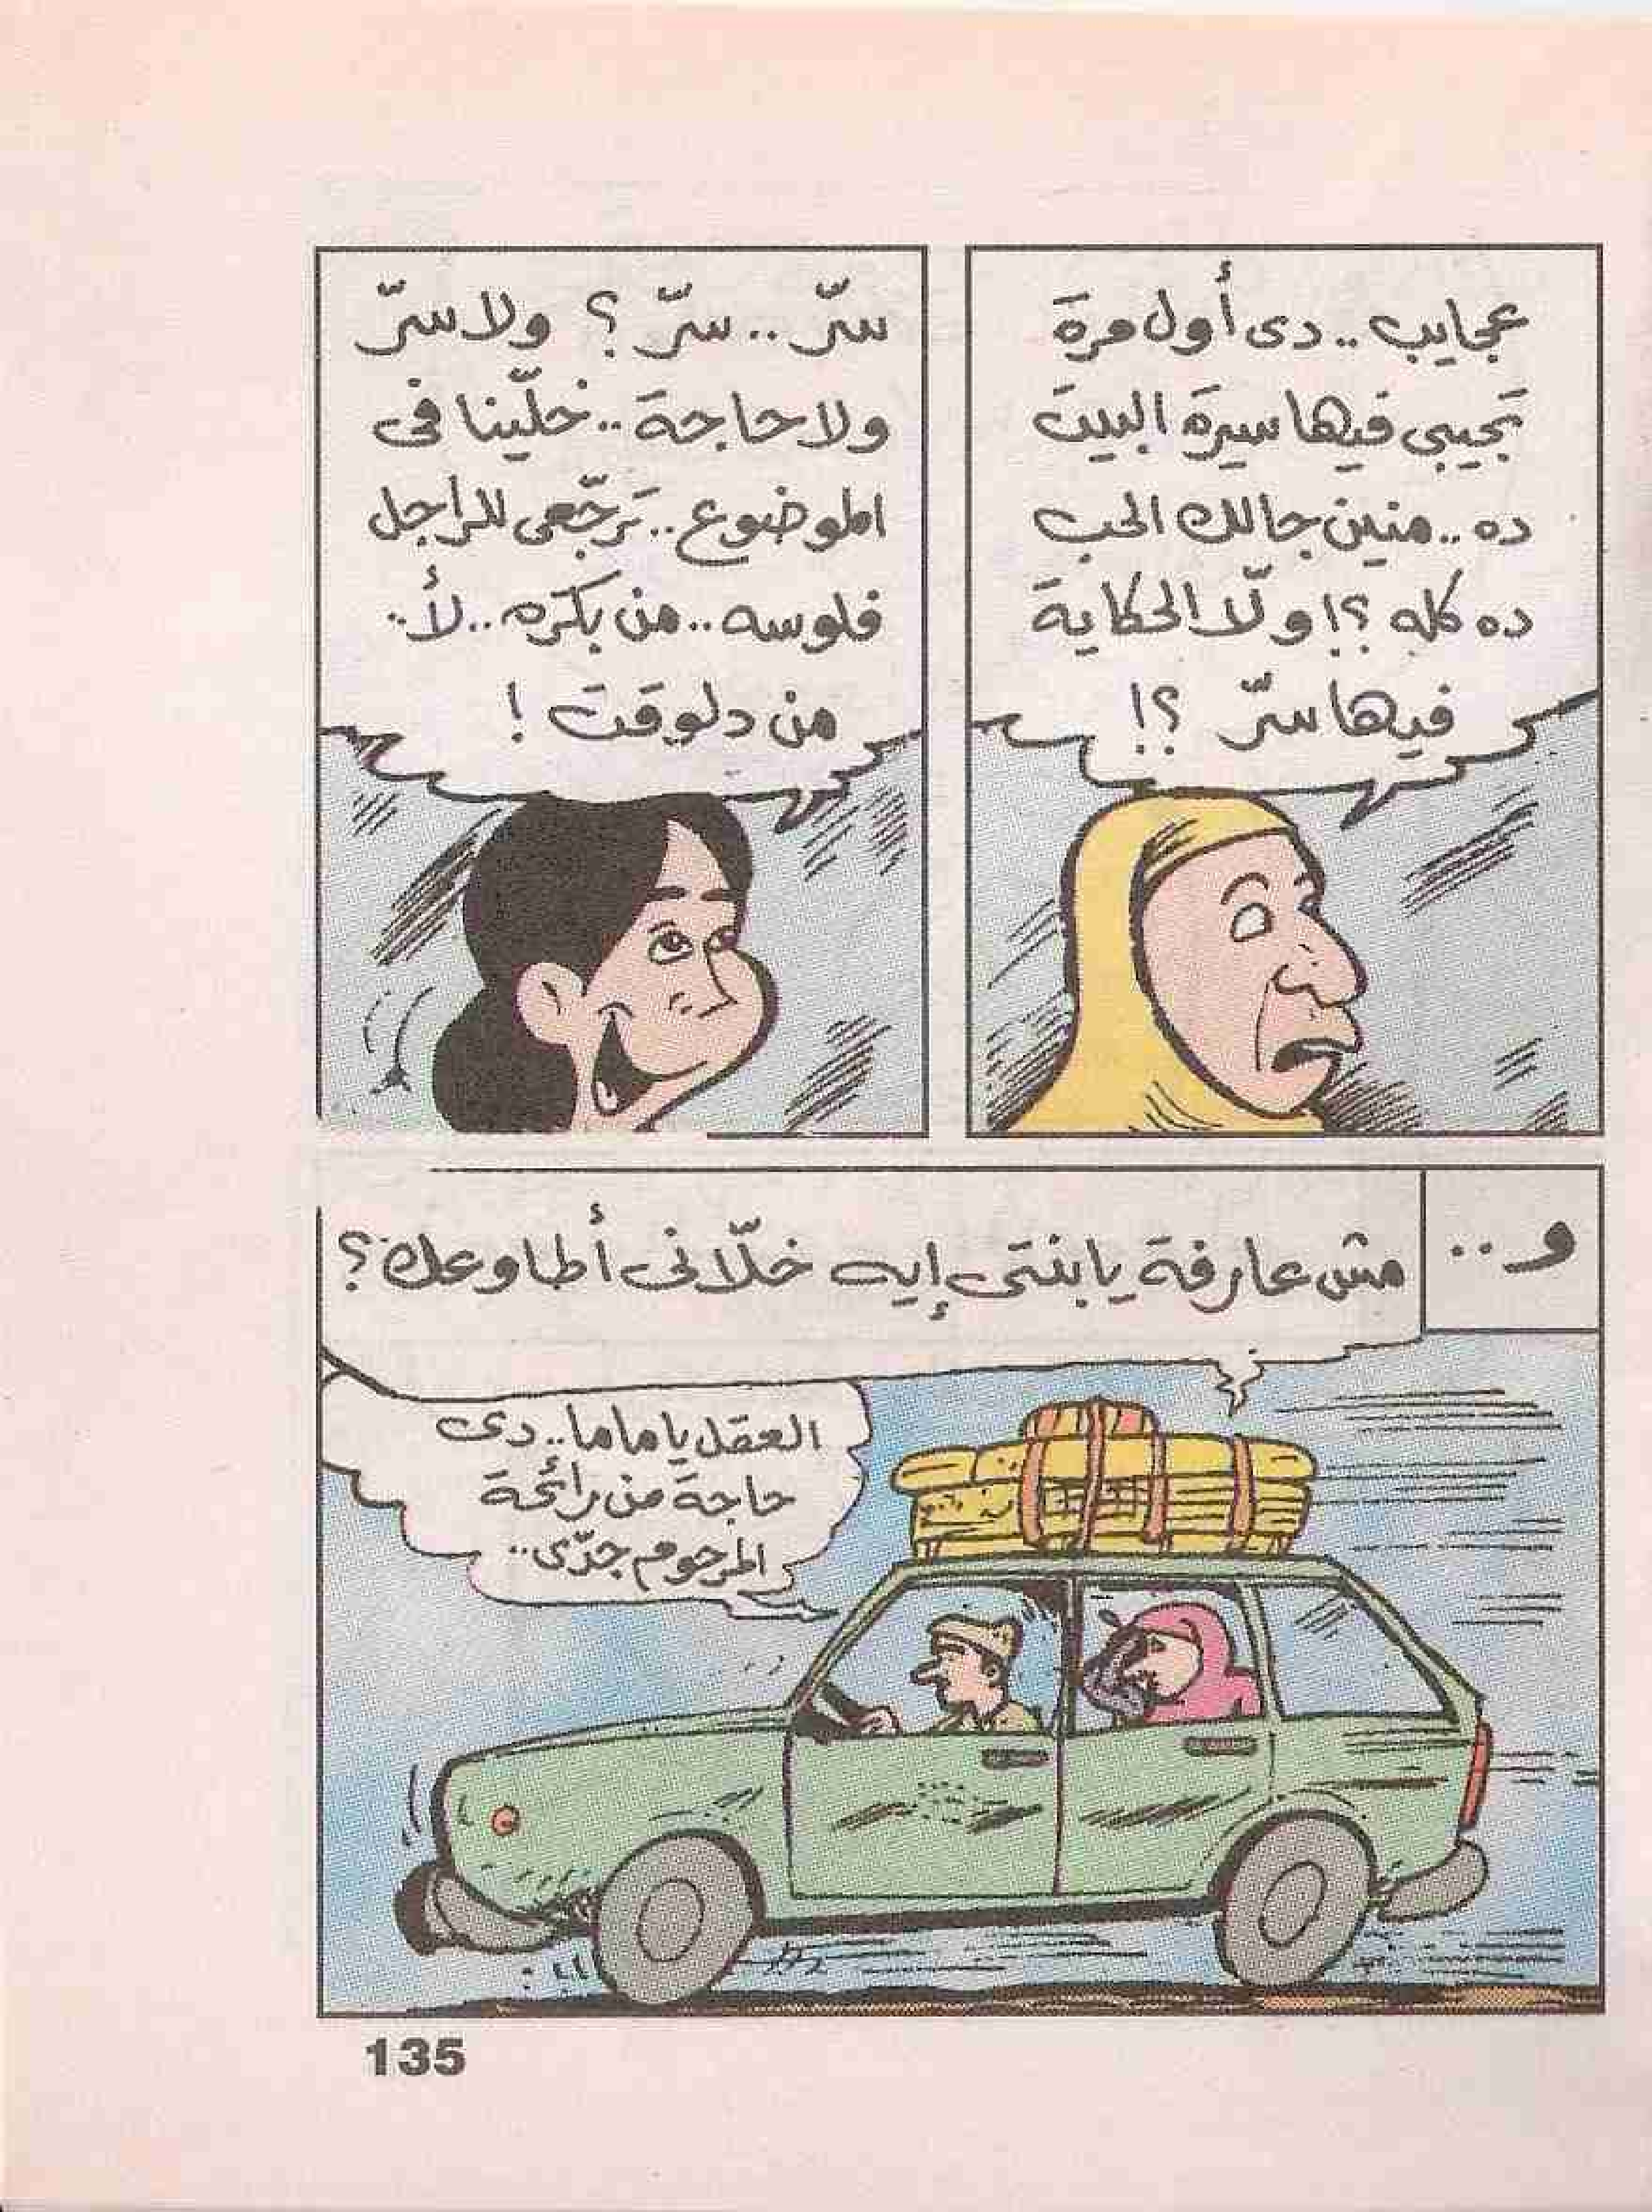 عجايب.. دى أول مرة
تجيبى فيها سيرة البيت
ده.. منين جالك الحب
ده كله ؟! ولّا الحكاية
فيها سرّ ؟!
سرّ.. سرّ ؟ ولا سرّ
ولا حاجة.. خلّينا فى
الموضوع.. ترجّعى للراجل
فلوسه.. من بكره.. لأ..
من دلوقت !
و..
مش عارفة يا بنتى إيه خلّانى أطاوعك ؟
العقل يا ماما.. دى
حاجة من رائحة
المرحوم جدّى..
135